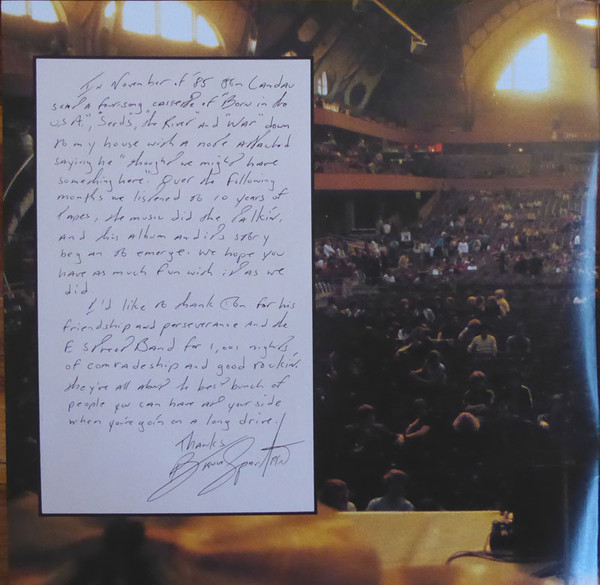 In November of '85 Jon Landau
sent a four song cassette of "Born in the
U.S.A.", "Seeds", "the River" and "War" down
to my house with a note attached
saying he "thought we might have
something here". Over the following
months we listened to 10 years of
tapes, the music did the talkin',
and this album and its story
began to emerge. We hope you
have as much fun with it as we
did.
I'd like to thank Jon for his
friendship and perseverance and the
E Street Band for 1,001 nights
of comradeship and good rockin'.
they're all about the best bunch of
people you can have at your side
when you're goin' on a long drive.
Thanks
Bruce Springsteen